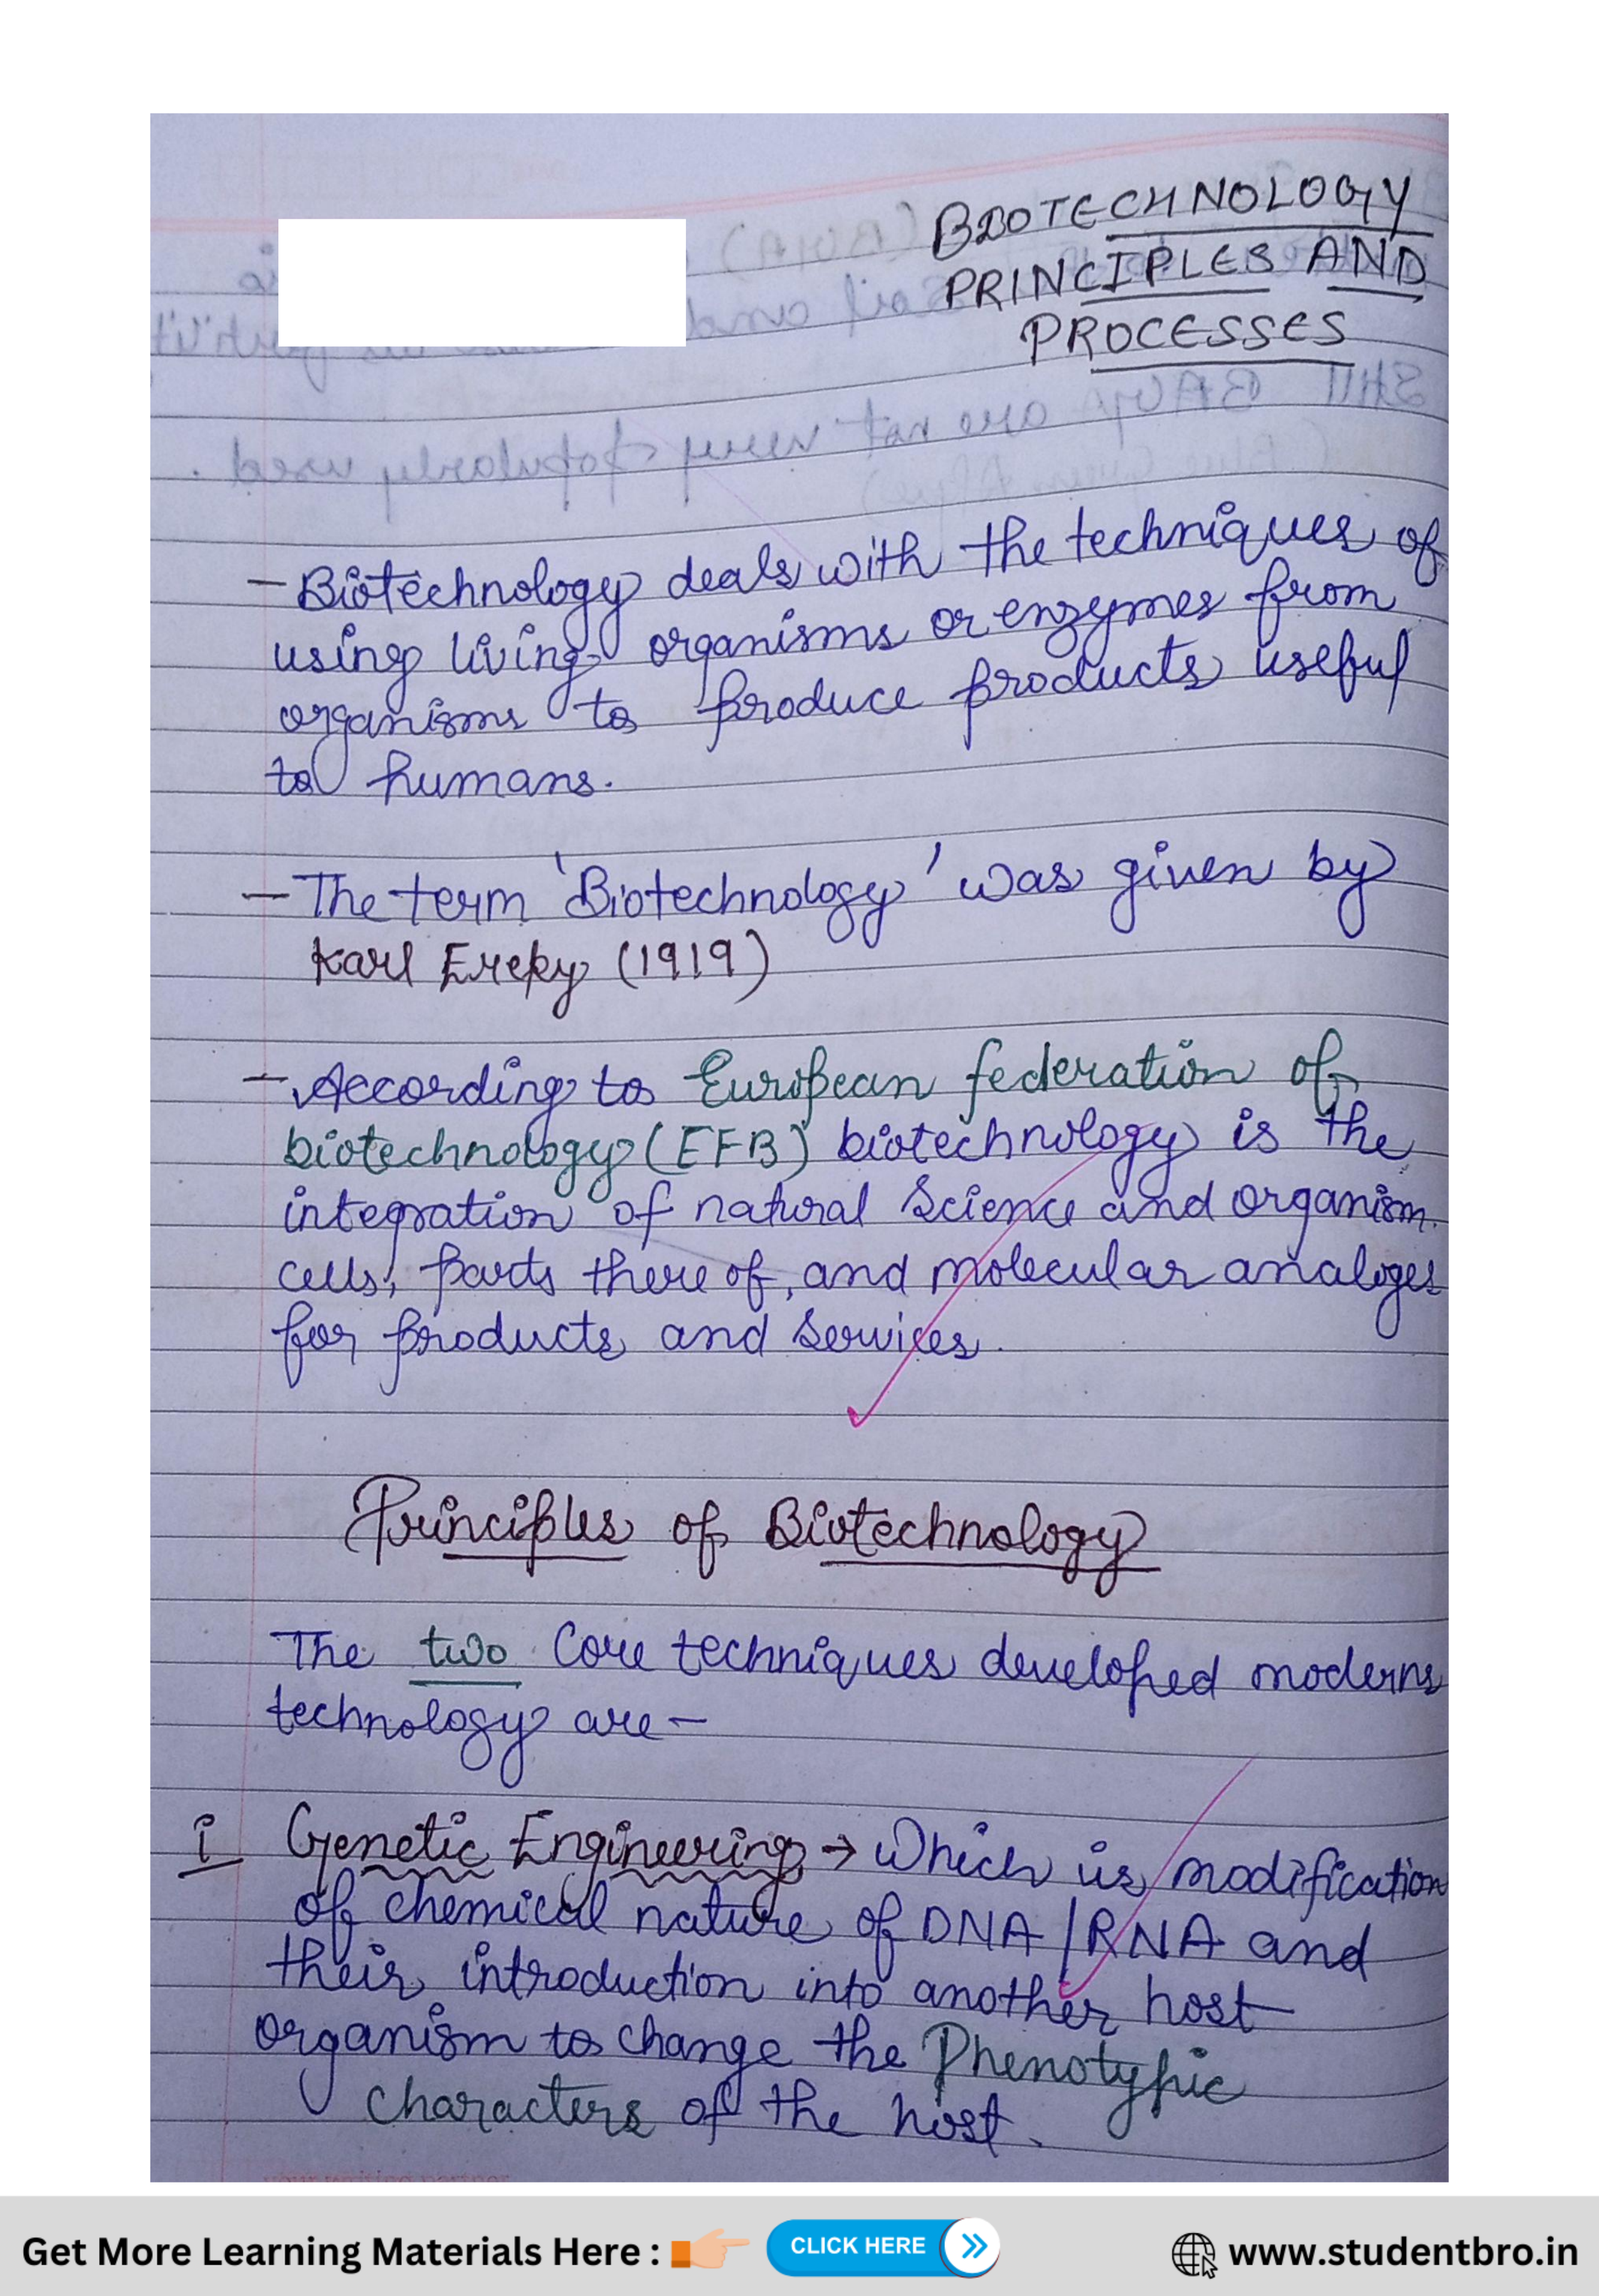 BIOTECHNOLOGY
PRINCIPLES AND
PROCESSES
- Biotechnology deals with the techniques of
using living organisms or enzymes from
organisms to produce products useful
to humans.
- The term 'Biotechnology' was given by
Karl Ereky (1919)
- According to European federation of
biotechnology (EFB) biotechnology is the
integration of natural science and organism
cells, parts there of, and molecular analoges
for products and services.
Principles of Biotechnology
The two Core techniques developed modern
technology are -
i Genetic Engineering → Which is modification
of chemical nature of DNA/RNA and
their introduction into another host
organism to change the Phenotypic
characters of the host.
Get More Learning Materials Here : CLICK HERE www.studentbro.in